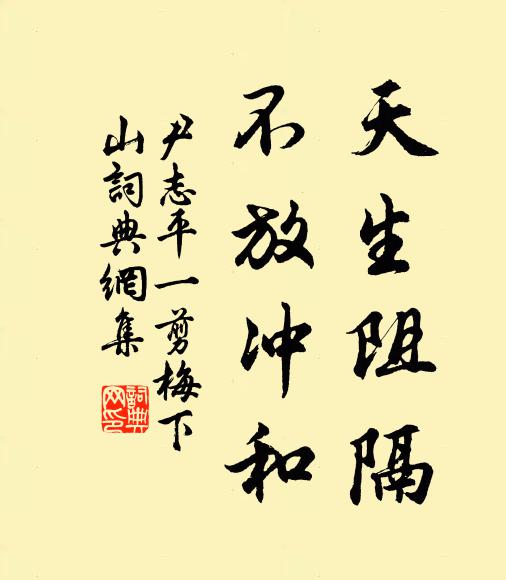 天生阻隔
不放冲和
尹志平一剪梅下
山詞典網集
詞典
网印